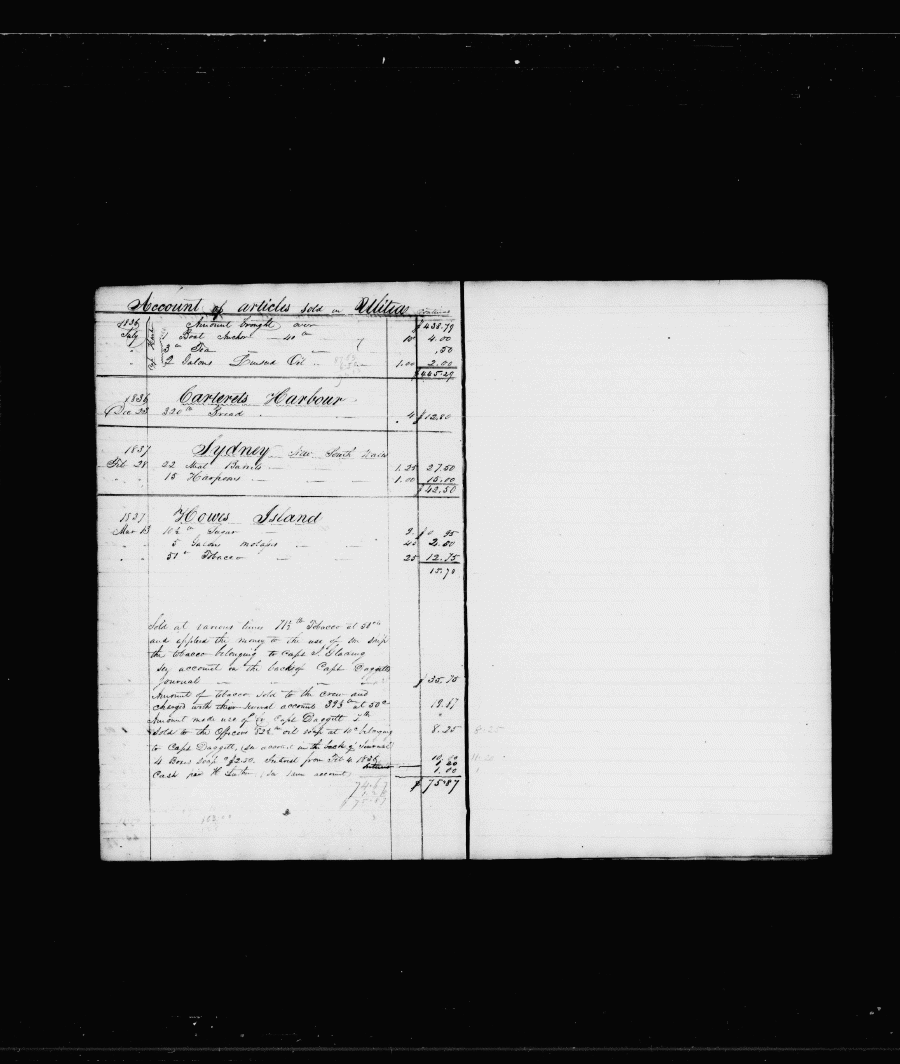 Account of articles sold in Ulitia Continued
1836 Amount brought over $438.79
July 1 Boat Anchor — 40 lb — 10 4.00
" 3 lb Tea — — .50
" 2 Galons Linseed Oil .. 1.00 2.00
$445.29
1836 Carterets Harbour
Dec 23 320 lb Bread 4 $12.80
1837 Sydney New South Wales
Feb 28 22 Meat Barrels — 1.25 27.50
" " 15 Harpoons — — 1.00 15.00
$42.50
1837 Howes Island
Mar 13 10½ lb Sugar — 9 $0 95
" " 5 Galons molasses — 40 2.00
" " 51 lb Tobacco — 25 12.75
15.70
Sold at various times 71½ lb Tobacco at 50 cts
and applied the money to the use of the ship
the tobacco belonging to Capt
see account in the back of Capt Daggetts
Journal — — — $35.75
Amount of tobacco sold to the crew and
charged with their several account 393 lb at 50 c 19.17
Amount made use of by Capt Daggett
Sold to the Officers 82½ lb oil soap at 10 c belonging 8.25 8.25
to Capt Daggett, (see account in the back of Journal)
4 Boxes soap $2.50. Interest from Feb 4 1836 10.60
Cash per H Luther, see same account 1.00
$75.87
74.67
1.20
$75.87